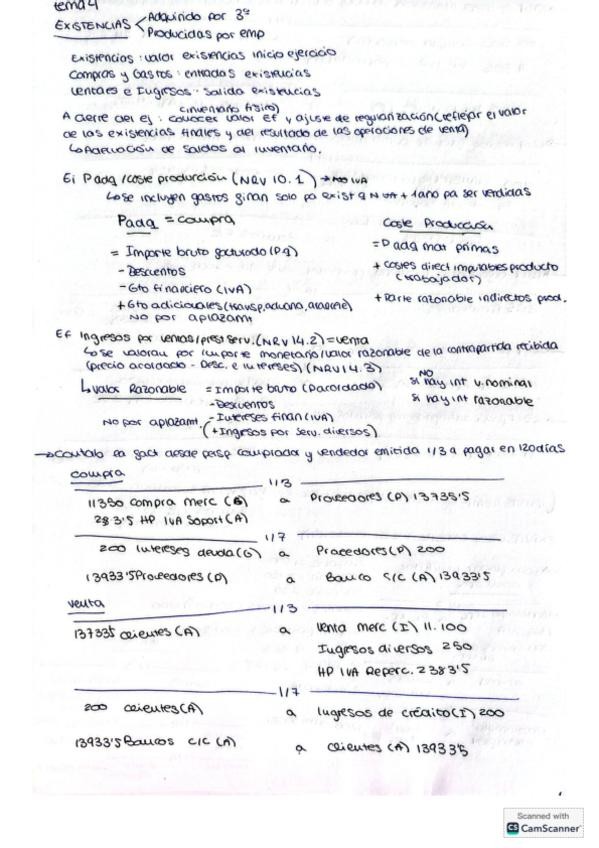 tema 4
EXISTENCIAS < Adquirido por 3º
Producidas por emp
Existencias: valor existencias inicio ejercicio
Compras y Gastos: entradas existencias
Ventas e Ingresos: Salida existencias
(inventario físico)
A cierre del ej: conocer valor Ef y ajuste de regularización (reflejar el valor
de las existencias finales y del resultado de las operaciones de venta)
↳ Adecuación de saldos al inventario.
Ei Padq/coste producción (NRV 10.1) → no IVA
Padq = compra
Coste Producción
= Importe bruto facturado (Pq)
= Padq mat primas
- Descuentos
+ costes direct imputables producto
(trabajador)
- Gto financiero (IVA)
+ Gto adicionales (transp, aduana, arancel)
+ Parte razonable indirectos prod.
NO por aplazamt
Ef Ingresos por ventas/prest serv. (NRV 14.2) = venta
↳ se valoran por importe monetario/valor razonable de la contrapartida recibida
(precio acordado - Desc. e intereses) (NRV 14.3)
↳ valor Razonable = Importe bruto (Pacordado)
NO
si hay int v. nominal
- Descuentos
si hay int razonable
NO por aplazamt. - Intereses finan (IVA)
(+ Ingresos por serv. diversos)
→ Contab la fact desde persp comprador y vendedor emitida 1/3 a pagar en 120 días
compra
1/3
11350 compra merc (G) a Proveedores (P) 13735'5
HP IVA Soport (A)
1/7
200 Intereses deuda (G) a Proeedores (P) 200
13933'5 Proveedores (P) a Banco c/c (A) 13933'5
venta
1/3
13733'5 clientes (A) a Venta merc (I) 11.100
Ingresos diversos 250
HP IVA Reperc. 2383'5
1/7
200 clientes (A) a Ingresos de crédito (I) 200
13933'5 Bancos c/c (A) a clientes (A) 13933'5
Scanned with
CS CamScanner